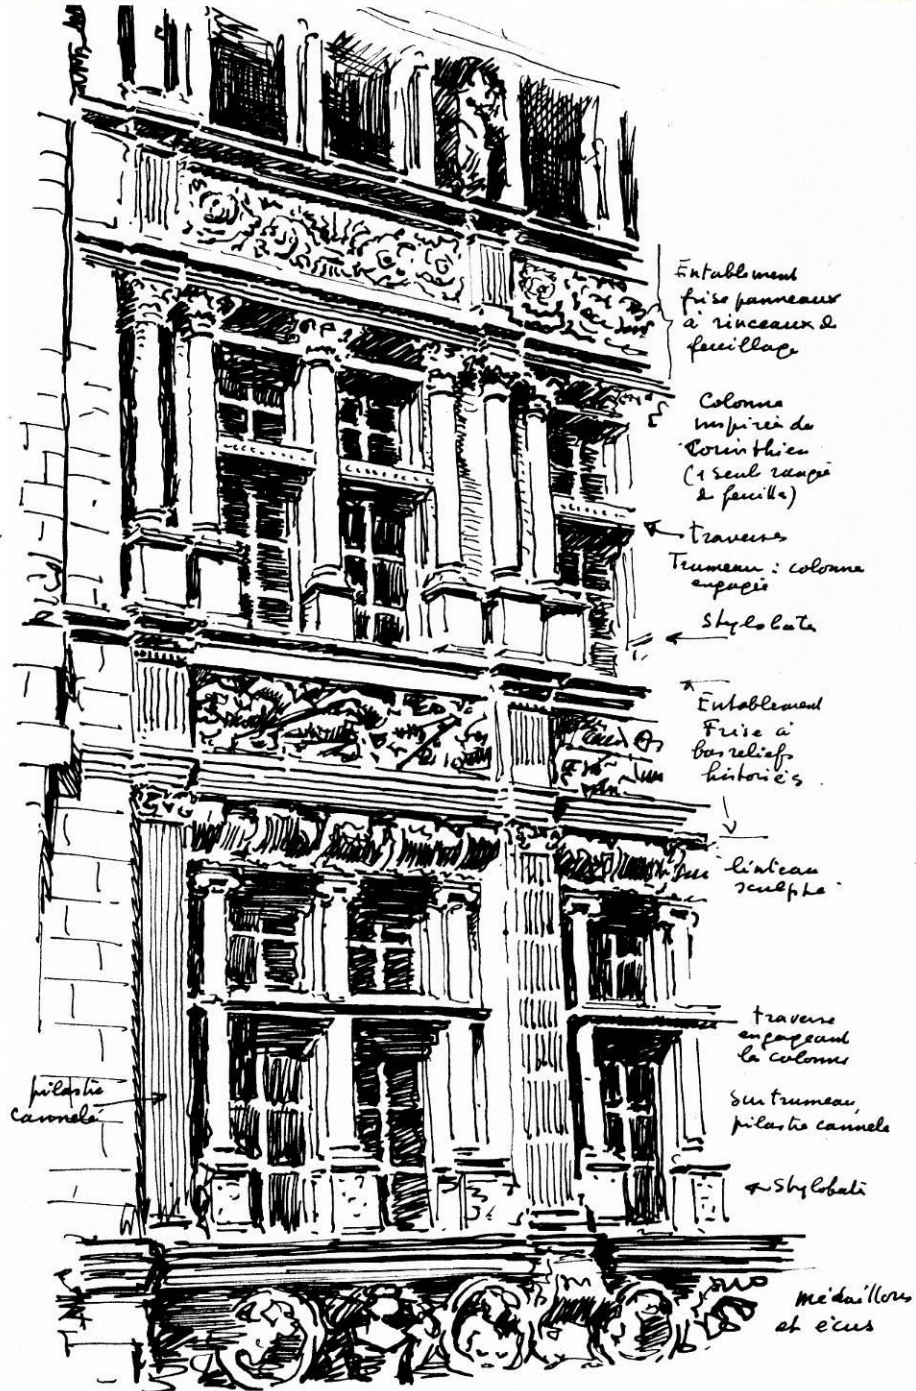 Entablement
frise panneaux
à rinceaux de
feuillage
Colonne
inspirée du
Corinthien
(1 seul rangée
de feuille)
traverses
Trumeau : colonne
engagée
Stylobate
Entablement
Frise à
bas reliefs
historiés
linteau
sculpté
traverse
engageant
la colonne
pilastre
cannelé
sur trumeau,
pilastre cannelé
Stylobate
médaillons
et écus